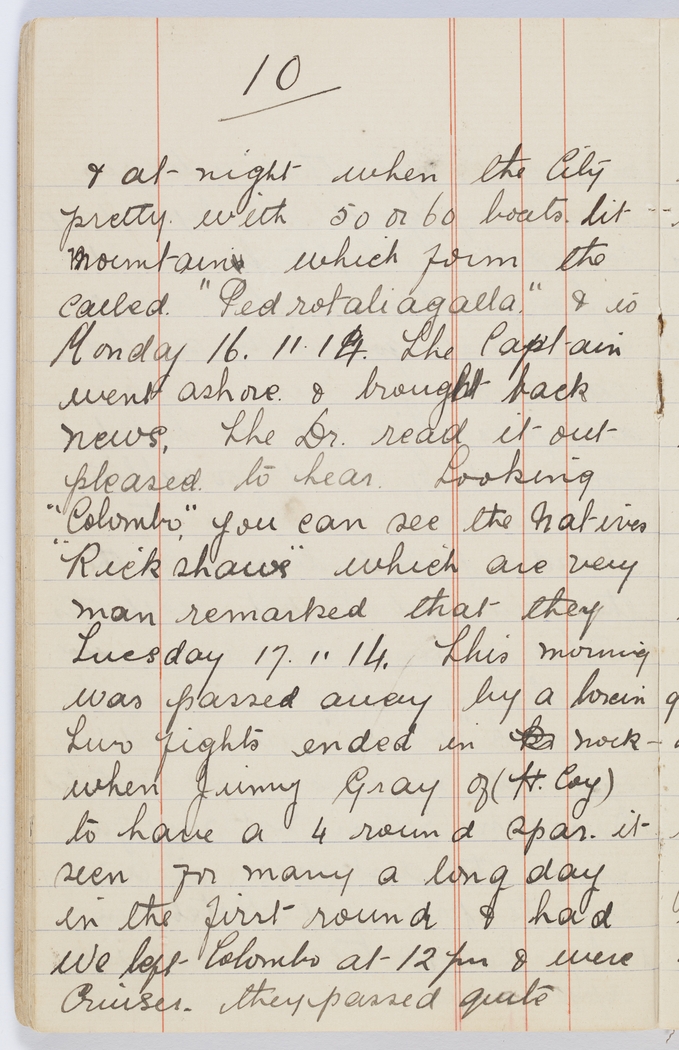 10
& at night when the City
pretty. with 50 or 60 boats. lit
mountain which form the
called. "Pedrotaliagalla," & is
Monday 16. 11. 14. The Captain
went ashore. & brought back
news, The Dr. read it out
pleased. to hear. Looking
"Colombo," you can see the Natives
"Rickshaws" which are very
man remarked that they
Tuesday 17. 11 14. This morning
was passed away by a boxin
Two fights ended in nock-
when Jimmy Gray of (H. Coy)
to have a 4 round spar. it
seen for many a long day
in the first round & had
We left Colombo at 12 pm & were
Cruiser. they passed quite